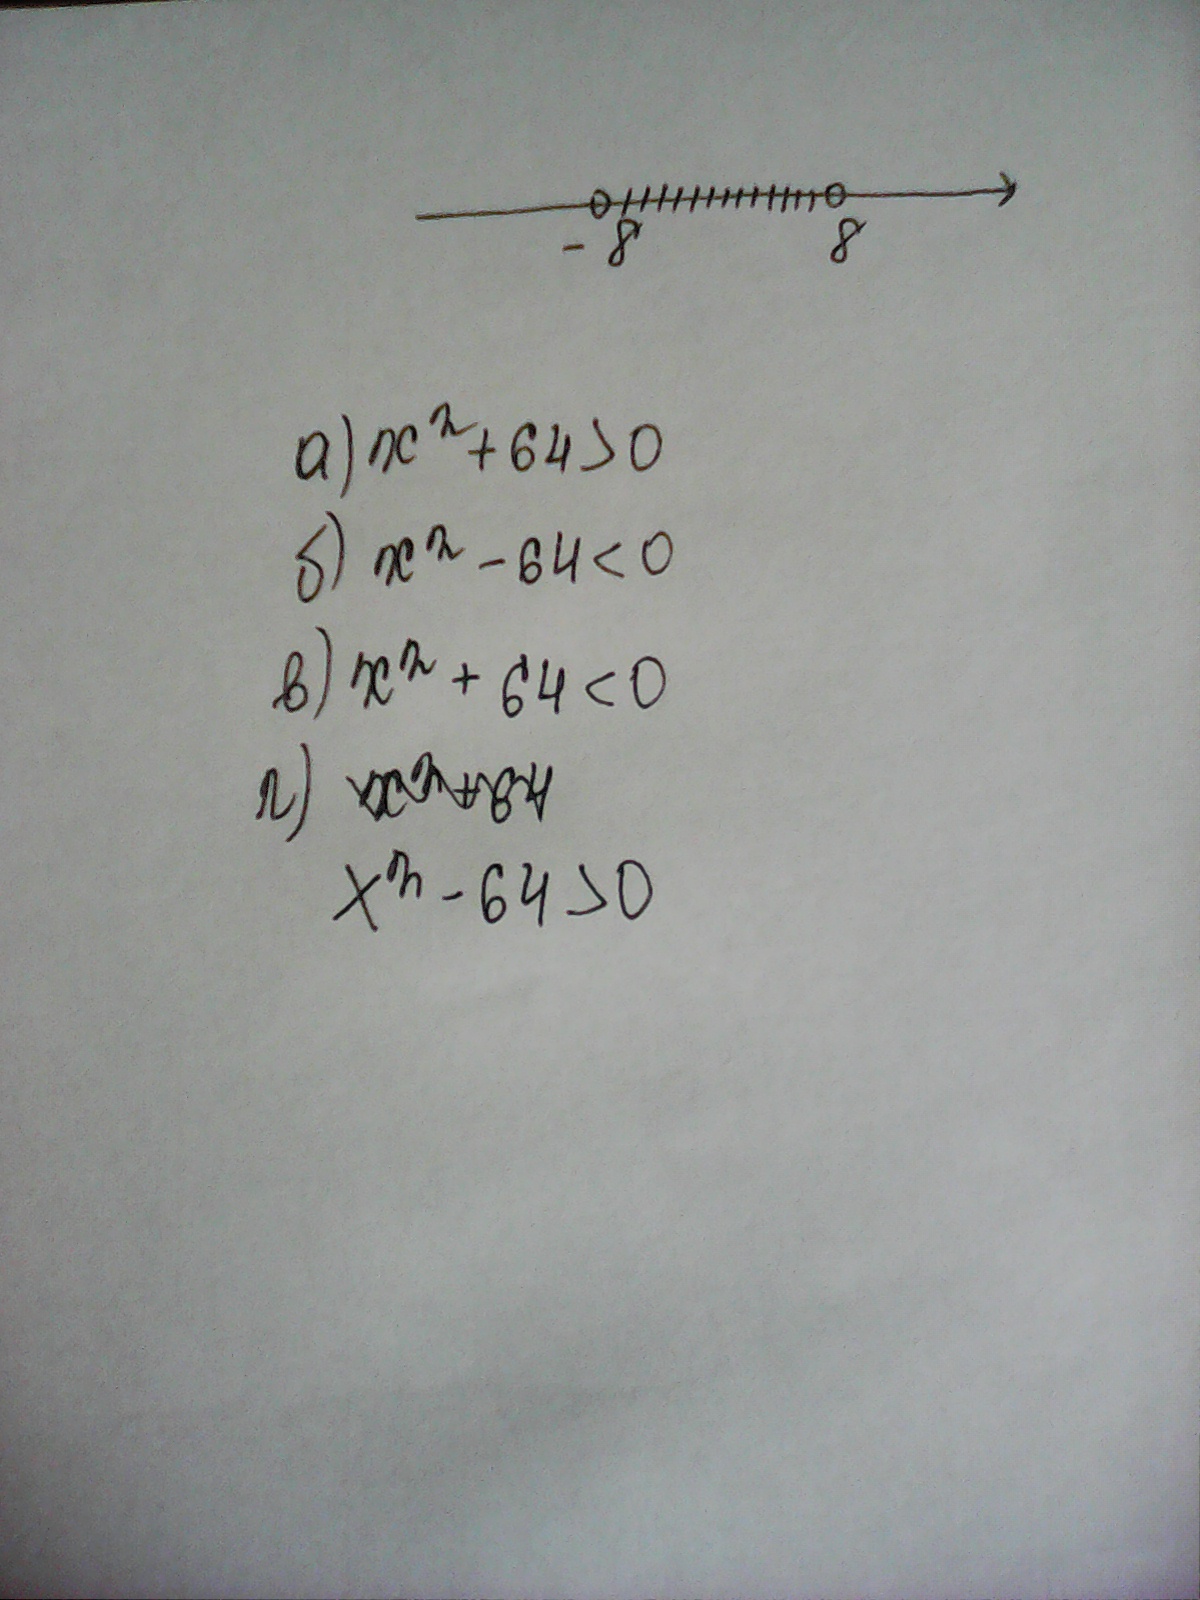 -8 8
а) x² + 64 > 0
б) x² - 64 < 0
в) x² + 64 < 0
г)
x² - 64 > 0